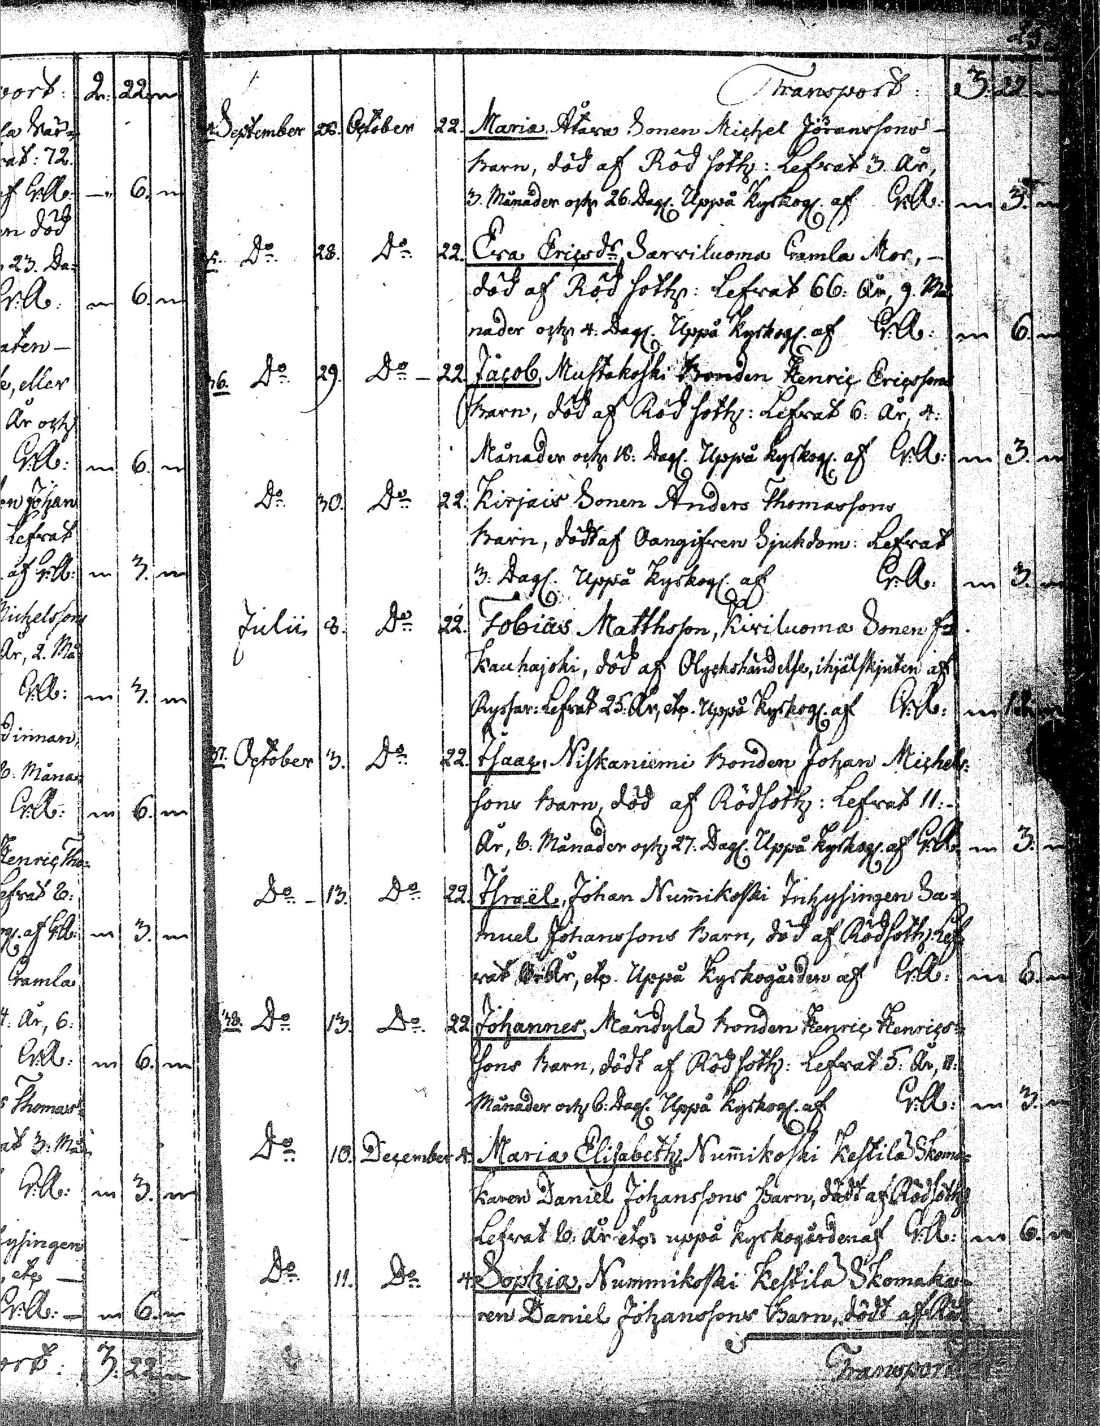 port: 2. 22. m
rat: 72.
af Gr.A: — 6. m
en död
, 23. Da=
Gr.A: m 6. m
aten —
eller
År och
Gr.A: m 6. m
Johan
Lefrat
af Gr.A: m 3. m
Michelssons
År, 2. Må
Gr.A: m 3. m
Månad
Gr.A: m 6. m
Henric Tho=
Lefrat 6:
af Gr.A: m 3. m
Gamla
4. År, 6:
Gr.A: m 6. m
Thomas
at 3: Må
Gr.A: m 3. m
hysingen
, etc —
Gr.A: — m 6. m
port: 3. 22 m
Transport: 3. 22 m
September 26. October 22. Maria, Atava Sonen Michel Jöranssons —
Barn, död af Röd soth: Lefvat 3. År,
3. Månader och 26. Dag. Uppå Kyrkog. af Gr.A: m 3. m
35. Do 28. Do 22. Eva Ericsdr, Sarviluoma Gamla Mor, —
död af Röd soth: Lefrat 66: År, 9. Må
nader och 4. Dag. Uppå Kyrkog. af Gr.A: m 6. m
36. Do 29. Do — 22. Jacob, Mustakoski Bonden Henric Ericssons
Barn, död af Röd soth: Lefrat 6: År, 4:
Månader och 18: Dag. Uppå Kyrkog. af Gr.A: m 3. m
Do 30. Do 22. Kirjais Sonen Anders Thomassons
Barn, dödt af Oangifven Sjukdom: Lefrat
3: Dag. Uppå Kyrkog. af Gr.A: m 3. m
Julii 8. Do 22. Tobias Matthsson, Kiviluoma Sonen fr.
Kauhajoki, död af Olyckshändelse, ihjälskjuten af
Ryssar: Lefrat 25. År, etc. Uppå Kyrkog. af Gr.A: m
37. October 3. Do 22. Isaac, Niskaniemi Bonden Johan Michels=
sons Barn, död af Rödsoth: Lefrat 11:-
År, 8. Månader och 27. Dag. Uppå Kyrkog. af Gr.A: m 3. m
Do — 13. Do 22. Israël, Johan Nummikoski Inhysingen Sa=
muel Johanssons Barn, död af Rödsoth: Lef
rat År, etc. Uppå Kyrkogården af Gr.A: m 6. m
38. Do 13. Do 22. Johannes, Mändylä Bonden Henric Henrics=
sons Barn, dödt af Rödsoth: Lefrat 5. År, 11:
Månader och 6: Dag. Uppå Kyrkog. af Gr.A: m 3. m
Do 10. December 4. Maria Elisabeth, Nummikoski Kestilä Skoma=
karen Daniel Johanssons Barn, dödt af Rödsoth
Lefrat 6. År etc. uppå Kyrkogården af Gr.A: m 6. m
Do 11. Do 4. Sophia, Nummikoski Kestilä Skomaka=
ren Daniel Johanssons Barn, dödt af Röd
Transport